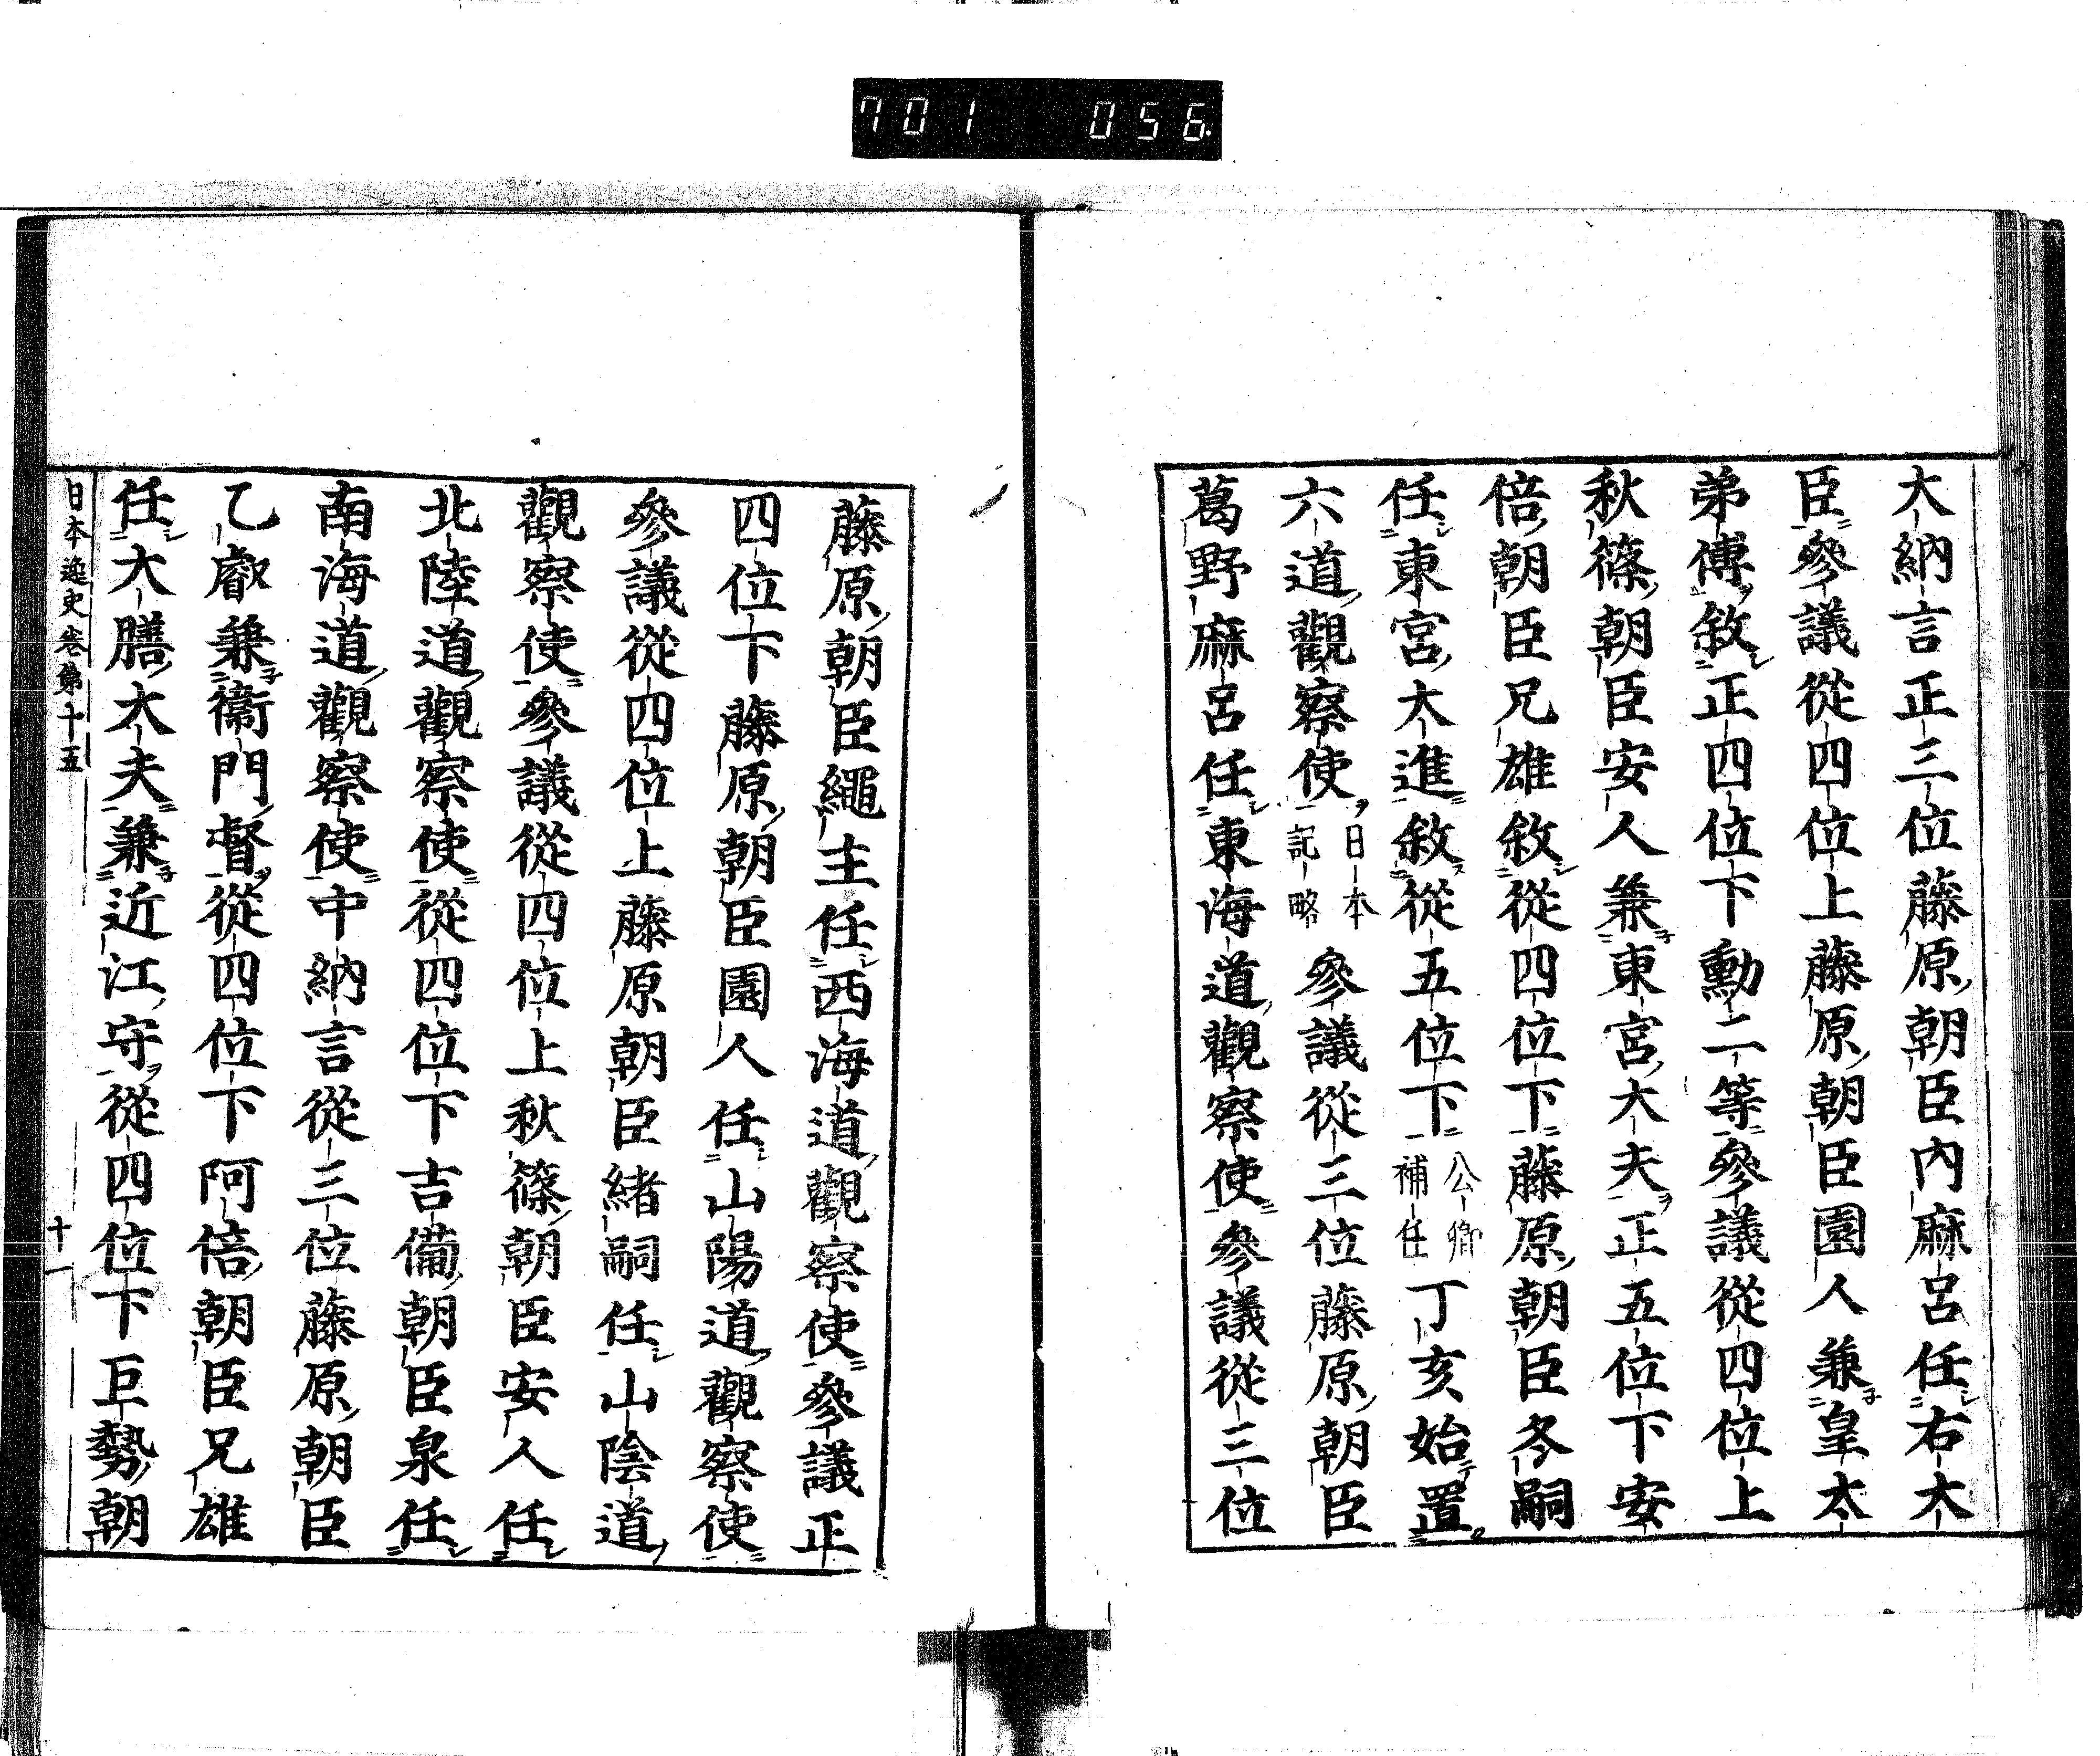 701 056
大納言正三位藤原朝臣內麻呂任右大
臣參議從四位上藤原朝臣園人兼皇太
弟傅敘正四位下勳二等參議從四位上
秋篠朝臣安人兼東宮大夫正五位下安
倍朝臣兄雄敘從四位下藤原朝臣冬嗣
任東宮大進敘從五位下公卿補任丁亥始置
六道觀察使日本記略參議從三位藤原朝臣
葛野麻呂任東海道觀察使參議從三位
藤原朝臣繩主任西海道觀察使參議正
四位下藤原朝臣園人任山陽道觀察使
參議從四位上藤原朝臣緒嗣任山陰道
觀察使參議從四位上秋篠朝臣安人任
北陸道觀察使從四位下吉備朝臣泉任
南海道觀察使中納言從三位藤原朝臣
乙叡兼衞門督從四位下阿倍朝臣兄雄
任大膳大夫兼近江守從四位下巨勢朝
日本逸史卷第十五 十一